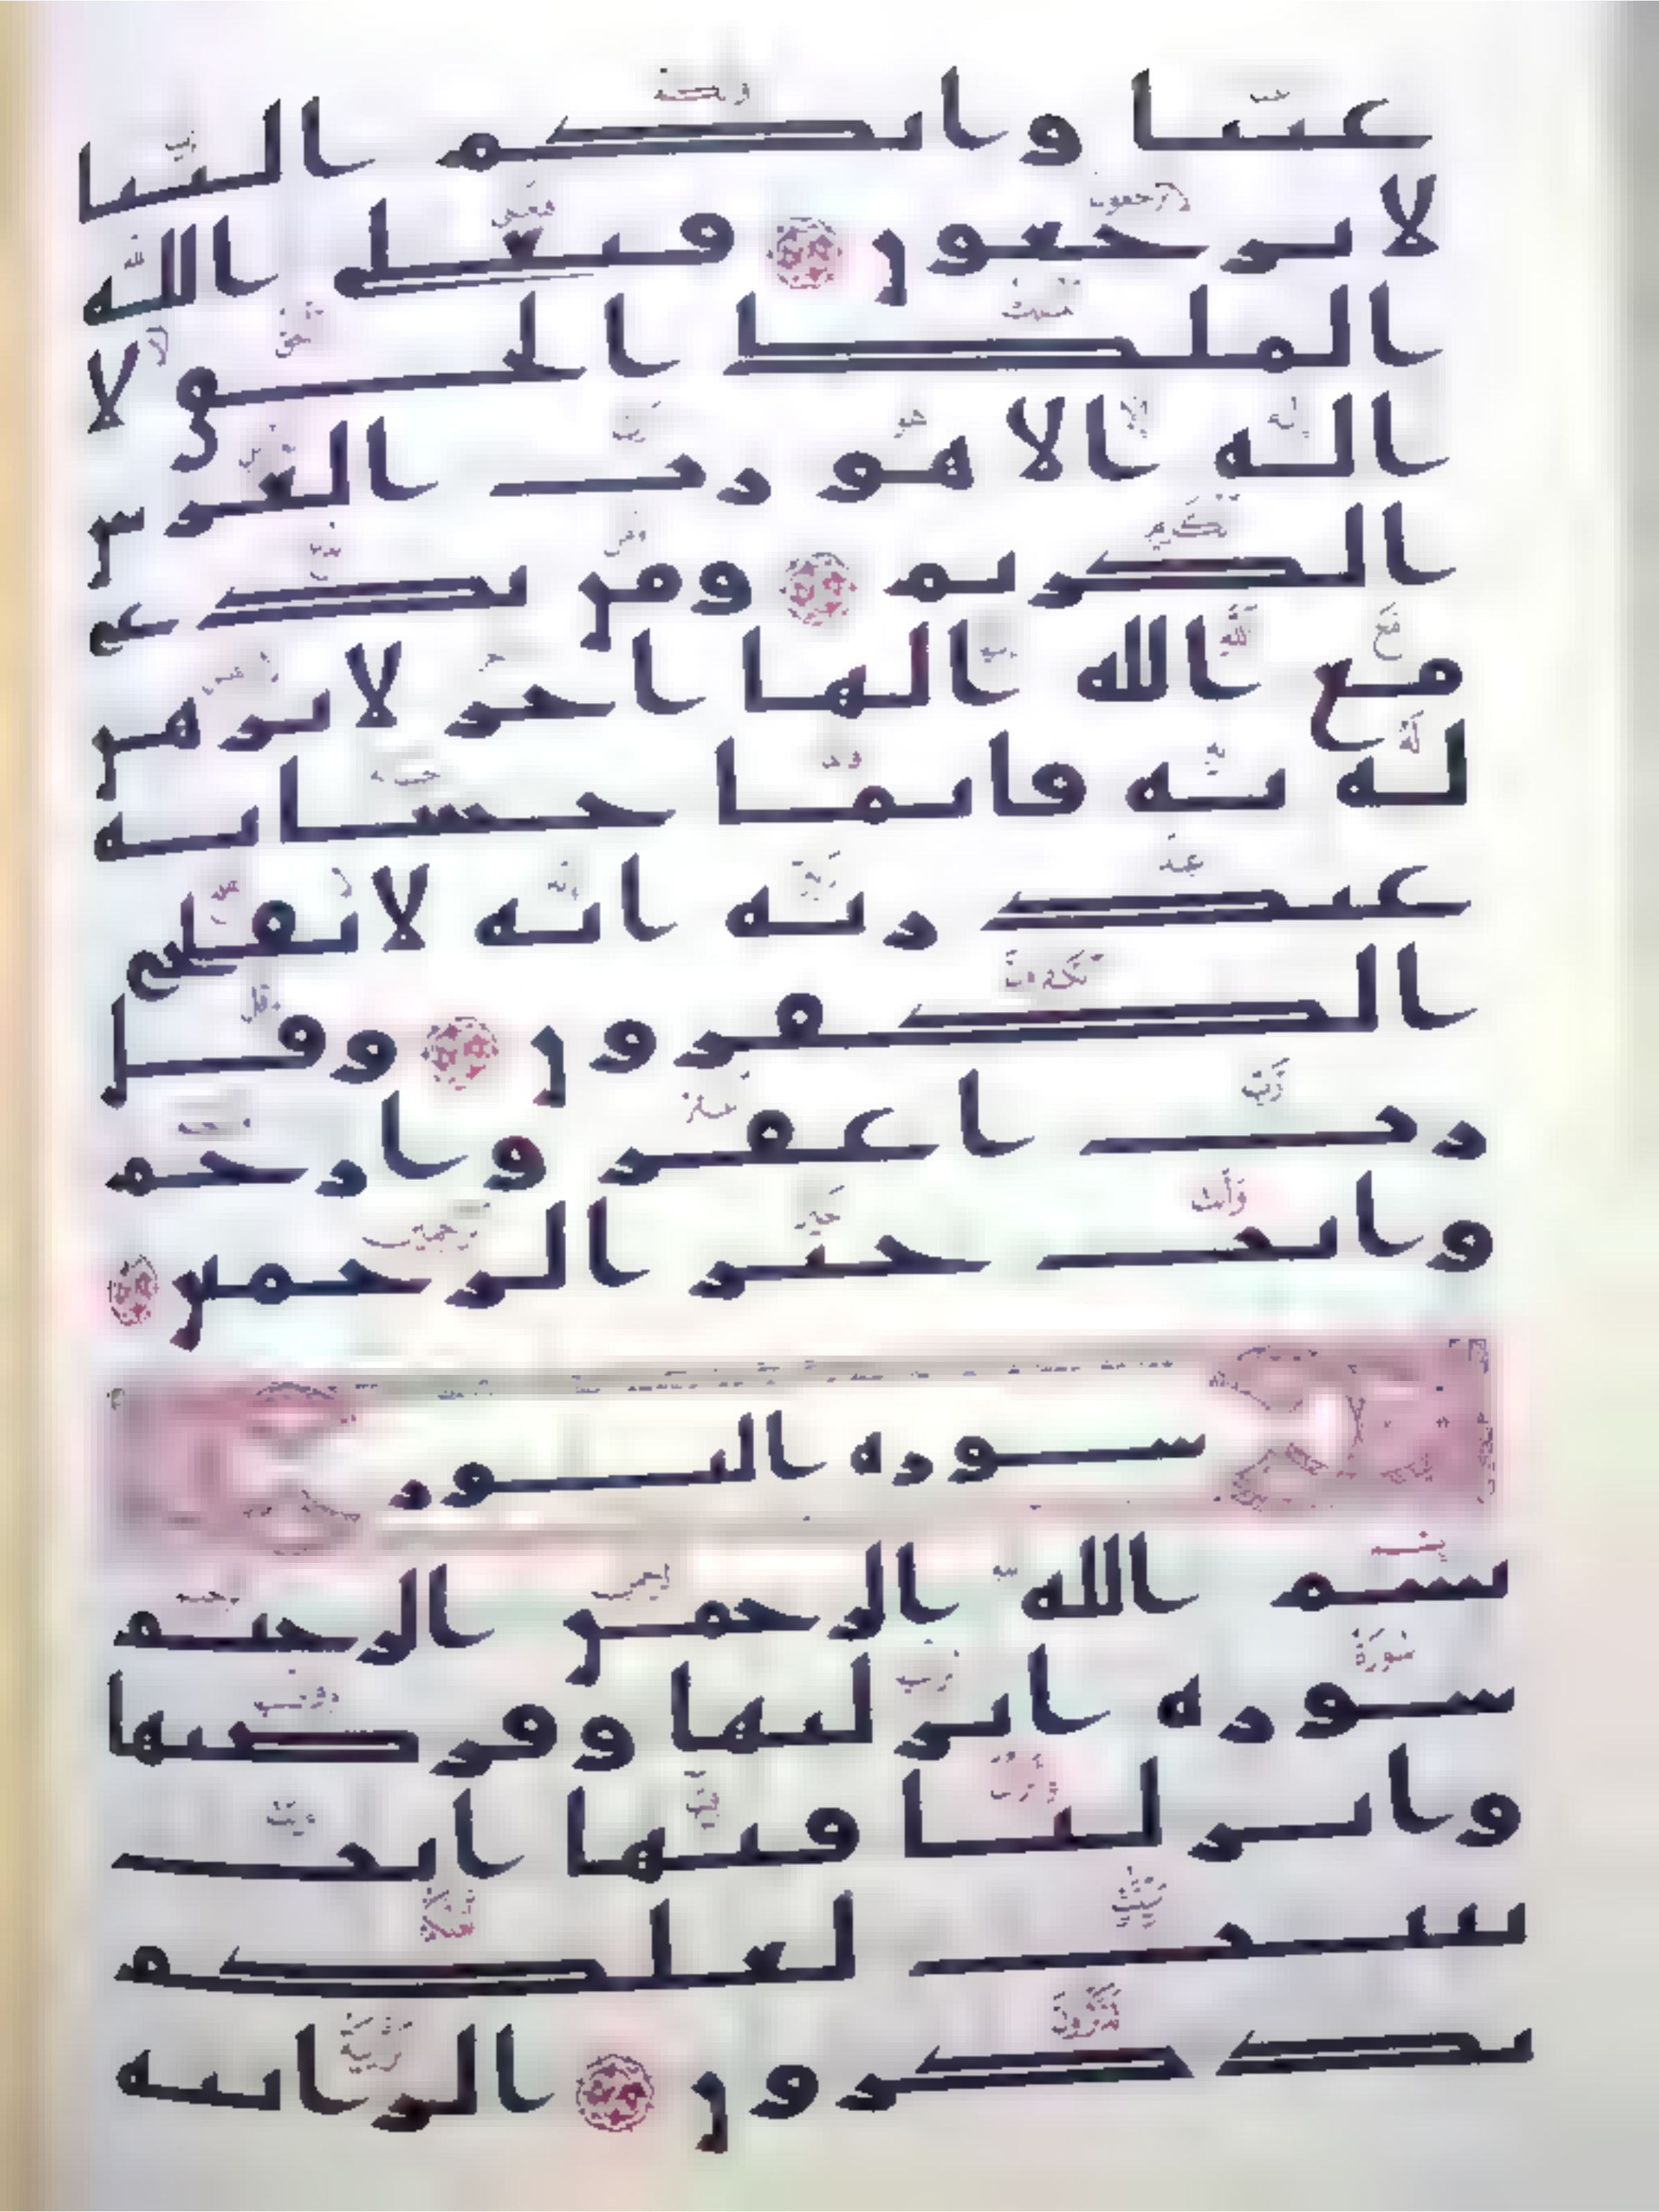 عبثا وانكم الينا
لا ترجعون فتعلى الله
الملك الحق لا
اله الا هو رب العرش
الكريم ومن يدع
مع الله الها اخر لا برهن
له به فانما حسابه
عند ربه انه لا يفلح
الكفرون وقل
رب اغفر وارحم
وانت خير الرحمين
سورة النور
بسم الله الرحمن الرحيم
سورة انزلنها وفرضنها
وانزلنا فيها ايت
بينت لعلكم
تذكرون الزانية